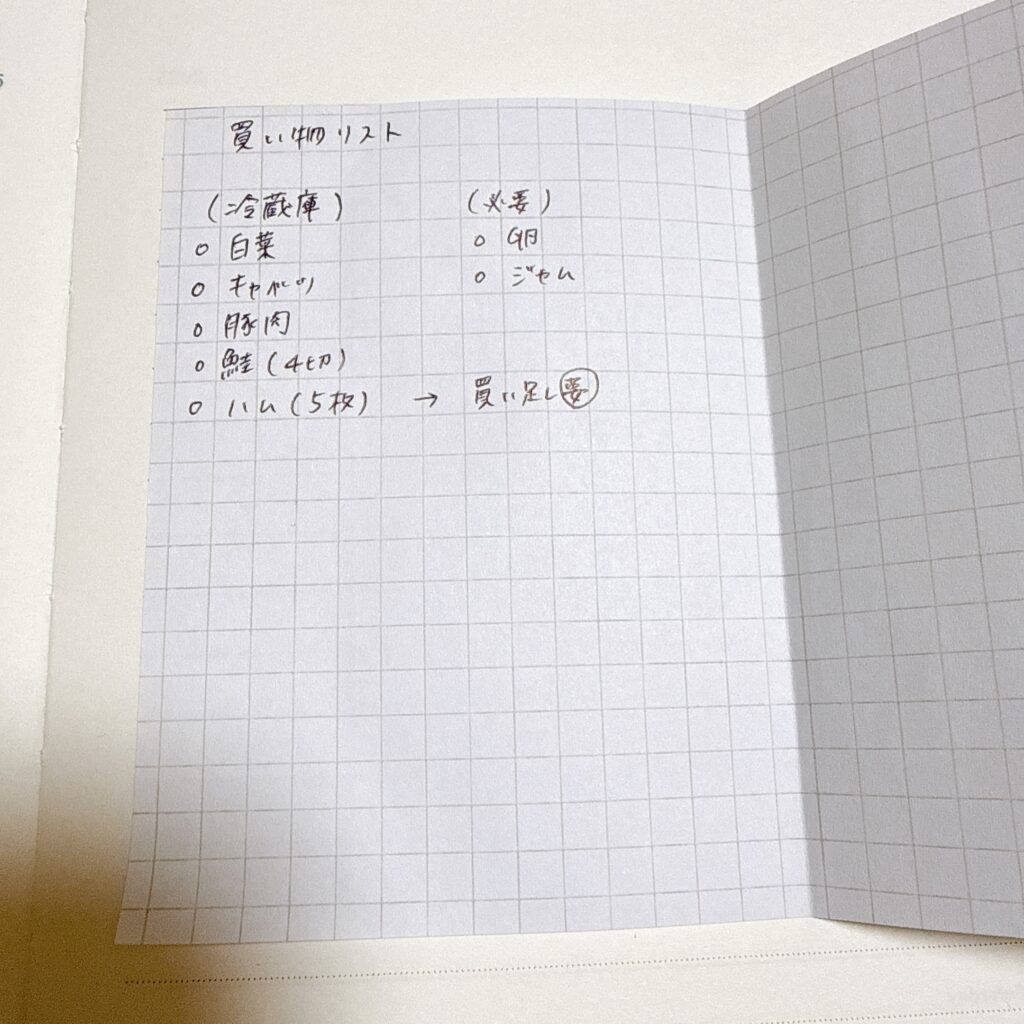 買い物リスト
(冷蔵庫)
○ 白菜
○ キャベツ
○ 豚肉
○ 鮭(4切)
○ ハム(5枚) → 買い足し要
(必要)
○ 卵
○ ジャム